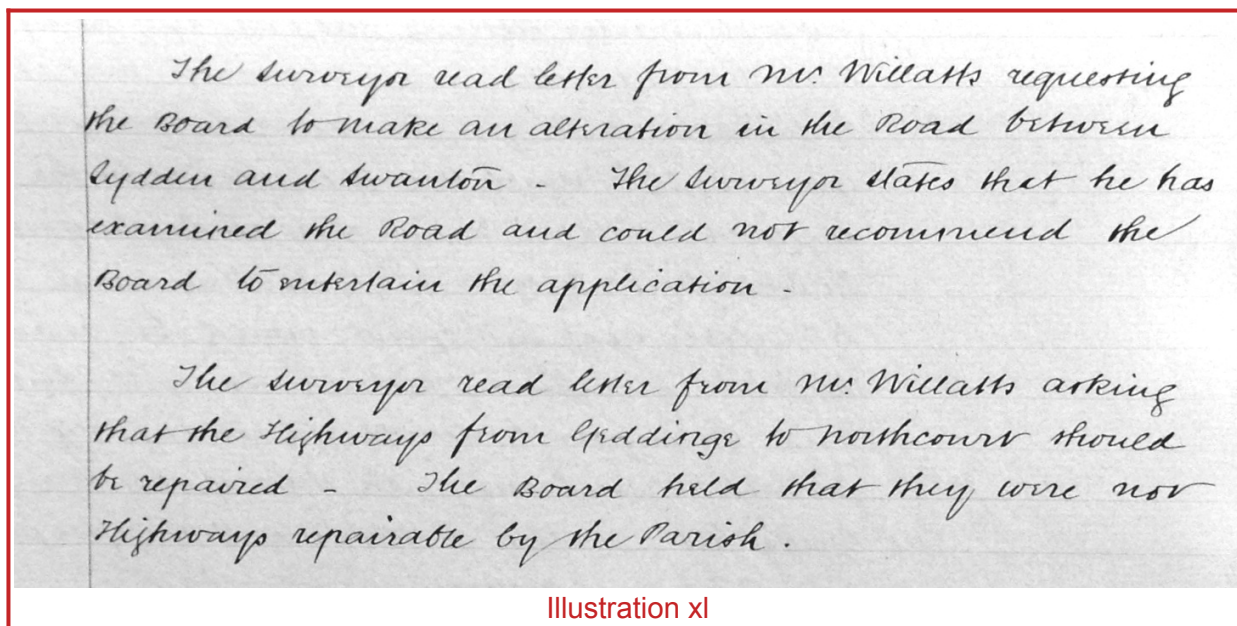 The Surveyor read letter from Mr. Willatts requesting
the Board to make an alteration in the Road between
Lydden and Swanton - The Surveyor states that he has
examined the Road and could not recommend the
Board to entertain the application
The Surveyor read letter from Mr. Willatts asking
that the Highways from Geddinge to Northcourt should
be repaired - The Board held that they were not
Highways repairable by the Parish.
Illustration xl